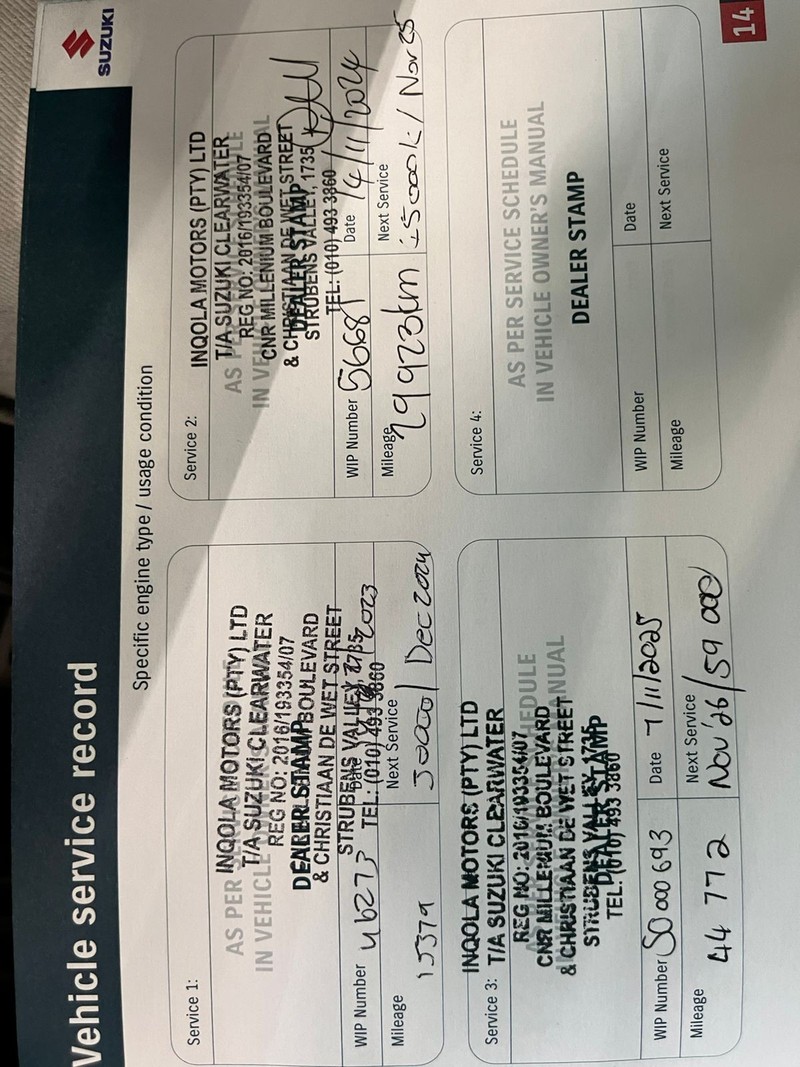 SUZUKI
Vehicle service record
Specific engine type / usage condition
Service 1:
AS PER
IN VEHICLE
INQOLA MOTORS (PTY) LTD
T/A SUZUKI CLEARWATER
REG NO: 2016/193354/07
DEALER STAMP
BOULEVARD
& CHRISTIAAN DE WET STREET
STRUBENS VALLEY, 1735
TEL: (010) 493 3860
WIP Number 46273
Date 2023
Mileage 15379
Next Service 30000/ Dec 2024
Service 2:
INQOLA MOTORS (PTY) LTD
T/A SUZUKI CLEARWATER
REG NO: 2016/193354/07
CNR MILLENIUM BOULEVARD
& CHRISTIAAN DE WET STREET
DEALER STAMP
STRUBENS VALLEY, 1735
TEL: (010) 493 3860
WIP Number 56681
Date 14/11/2024
Mileage 29923km
Next Service 45000k / Nov 25
Service 3:
INQOLA MOTORS (PTY) LTD
T/A SUZUKI CLEARWATER
REG NO: 2016/193354/07
CNR MILLENIUM BOULEVARD
& CHRISTIAAN DE WET STREET
STRUBENS VALLEY, 1735
DEALER STAMP
TEL: (010) 493 3860
WIP Number SO000693
Date 7/11/2025
Mileage 44 772
Next Service Nov'26/59 000
Service 4:
AS PER SERVICE SCHEDULE
IN VEHICLE OWNER'S MANUAL
DEALER STAMP
WIP Number
Date
Mileage
Next Service
14